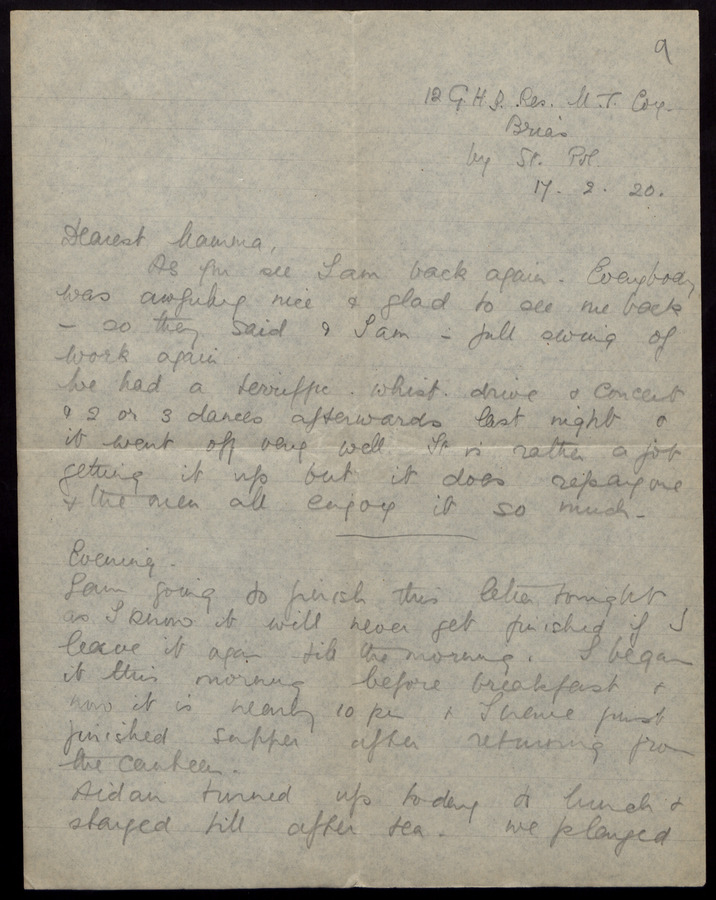 9
12 G H Q. Res. M. T. Coy.
Brias
by St. Pol
17. 2. 20.
Dearest Mamma,
As you see I am back again. Everybody
was awfully nice & glad to see me back
– so they said & I am in full swing of
work again
We had a terriffic whist drive & Concert
& 2 or 3 dances afterwards last night &
it went off very well. It is rather a job
getting it up but it does repay one
& the men all enjoy it so much –
Evening.
I am going to finish this letter tonight
as I know it will never get finished if I
leave it again till the morning. I began
it this morning before breakfast &
now it is nearly 10 pm & I have just
finished supper after returning from
the canteen.
Aidan turned up today to lunch &
stayed till after tea – we played